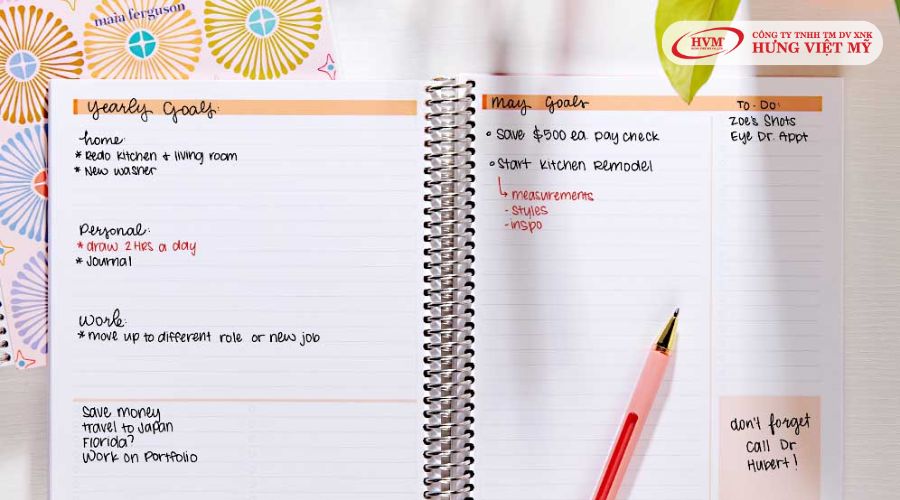 maia ferguson
HVM
CÔNG TY TNHH TM DV XNK
HƯNG VIỆT MỸ
Yearly Goals:
home:
* Redo kitchen + living room
* New washer
Personal:
* draw 2 HRS a day
* Journal
Work:
* move up to different role or new job
Save money
travel to Japan
Florida?
Work on Portfolio
May Goals
• Save $500 ea. paycheck
• Start Kitchen Remodel
↳ measurements
- styles
- inspo
To-Do:
Zoe's Shots
Eye Dr. Appt
don't forget
Call Dr
Hubert!